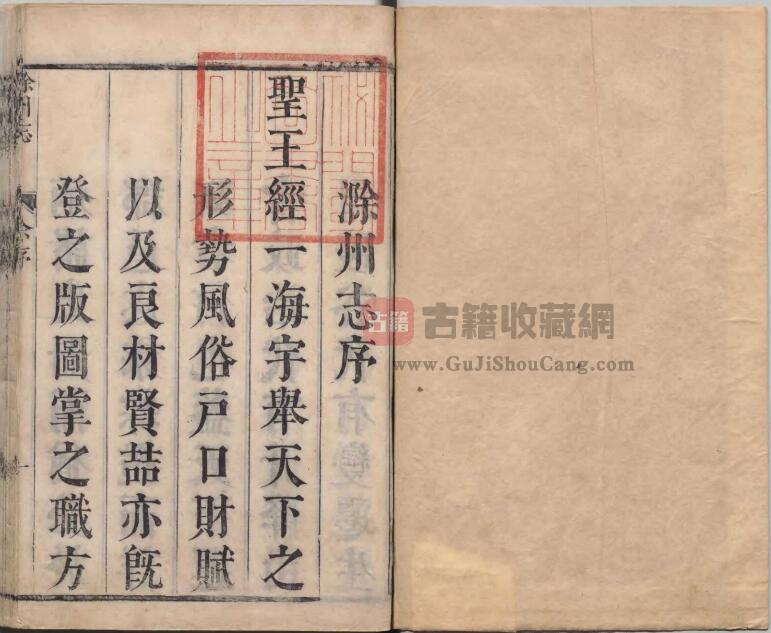 滁州志序
聖王經一海宇舉天下之
形勢風俗戸口財賦
以及良材賢喆亦旣
登之版圖掌之職方
滁州志
余序
一
古籍
古籍收藏網
www.GuJiShouCang.com